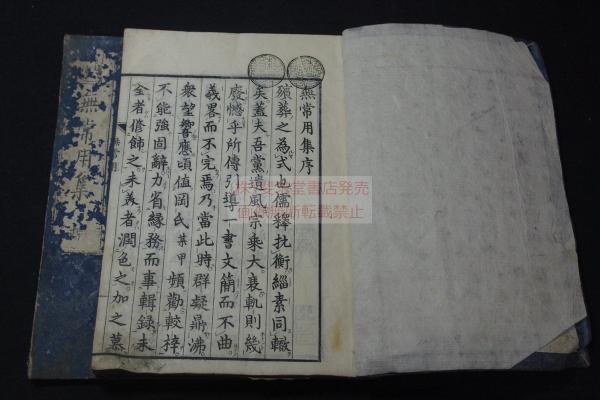 無常用集序
殯葬之為式也儒釋抗衡緇素同轍
矣蓋夫吾黨遺風宗乘大衰軌則幾
廢憾乎所傳引導一書文簡而不曲
義畧而不完焉乃當此時群疑鼎沸
衆望響應頃值岡氏某甲頻勸較挍
不能強固辭力省緣務而事輯錄未
全者修飾之未義者潤色之加之慕
無常用集
書店発売
画像無断転載禁止